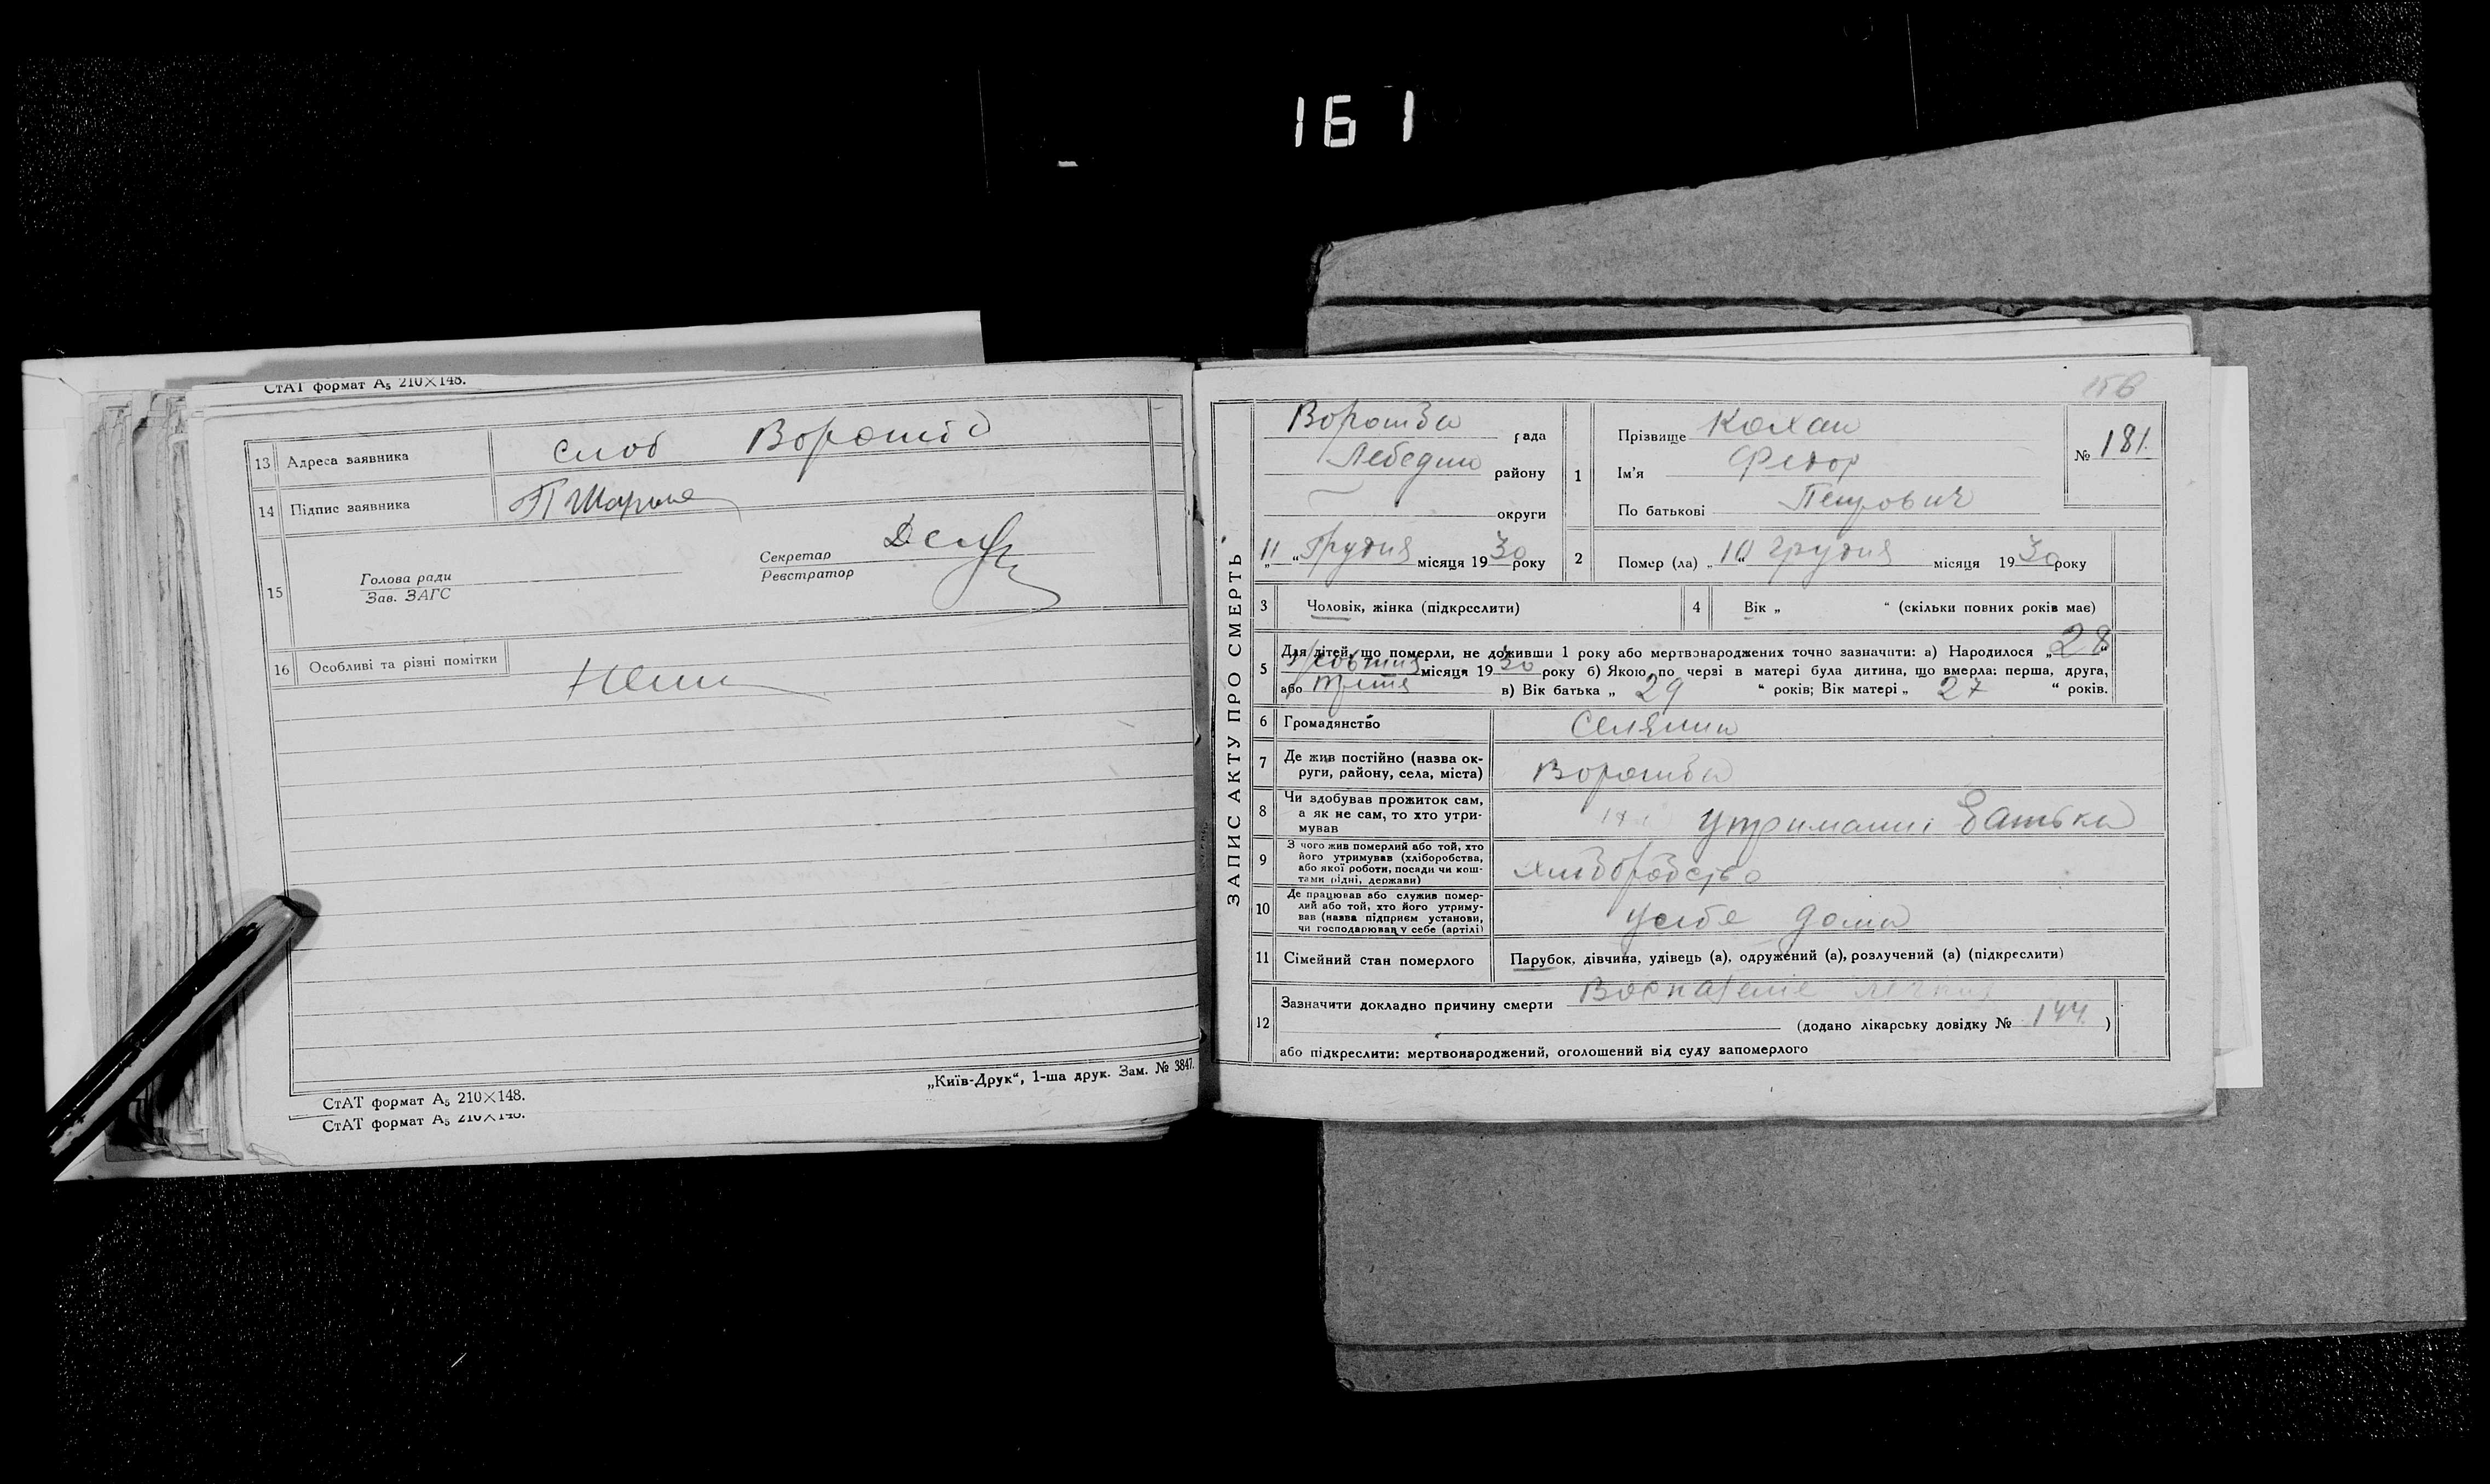 161
СтАТ формат А₅ 210×148.
13 Адреса заявника слоб Ворожба
14 Підпис заявника
15 Голова ради
Зав. ЗАГС
Секретар
Реєстратор
16 Особливі та різні помітки
Нема
„Київ-Друк“, 1-ша друк. Зам. № 3847.
СтАТ формат А₅ 210×148.
СтАТ формат А₅ 210×148.
156
ЗАПИС АКТУ ПРО СМЕРТЬ
Ворожба рада
Лебедин району
округи
„11“ Грудня місяця 1930 року
1 Прізвище Кохан
Ім'я Федор
По батькові Петрович
№ 181.
2 Помер (ла) „10“ грудня місяця 1930 року
3 Чоловік, жінка (підкреслити)
4 Вік „ “ (скільки повних років має)
5 Для дітей, що померли, не доживши 1 року або мертвонароджених точно зазначити: а) Народилося „28“
Жовтня місяця 1930 року б) Якою по черзі в матері була дитина, що вмерла: перша, друга,
або третя в) Вік батька „29“ років; Вік матері „27“ років.
6 Громадянство Селянин
7 Де жив постійно (назва ок-
руги, району, села, міста) Ворожба
8 Чи здобував прожиток сам,
а як не сам, то хто утри-
мував
утриманні батька
9 З чого жив померлий або той, хто
його утримував (хліборобства,
або якої роботи, посади чи кош-
тами рідні, держави)
хліборобство
10 Де працював або служив помер-
лий або той, хто його утриму-
вав (назва підприєм установи,
чи господарював у себе (артілі)
усебе дома
11 Сімейний стан померлого Парубок, дівчина, удівець (а), одружений (а), розлучений (а) (підкреслити)
12 Зазначити докладно причину смерти Воспаление легких
(додано лікарську довідку № 144.)
або підкреслити: мертвонароджений, оголошений від суду запомерлого